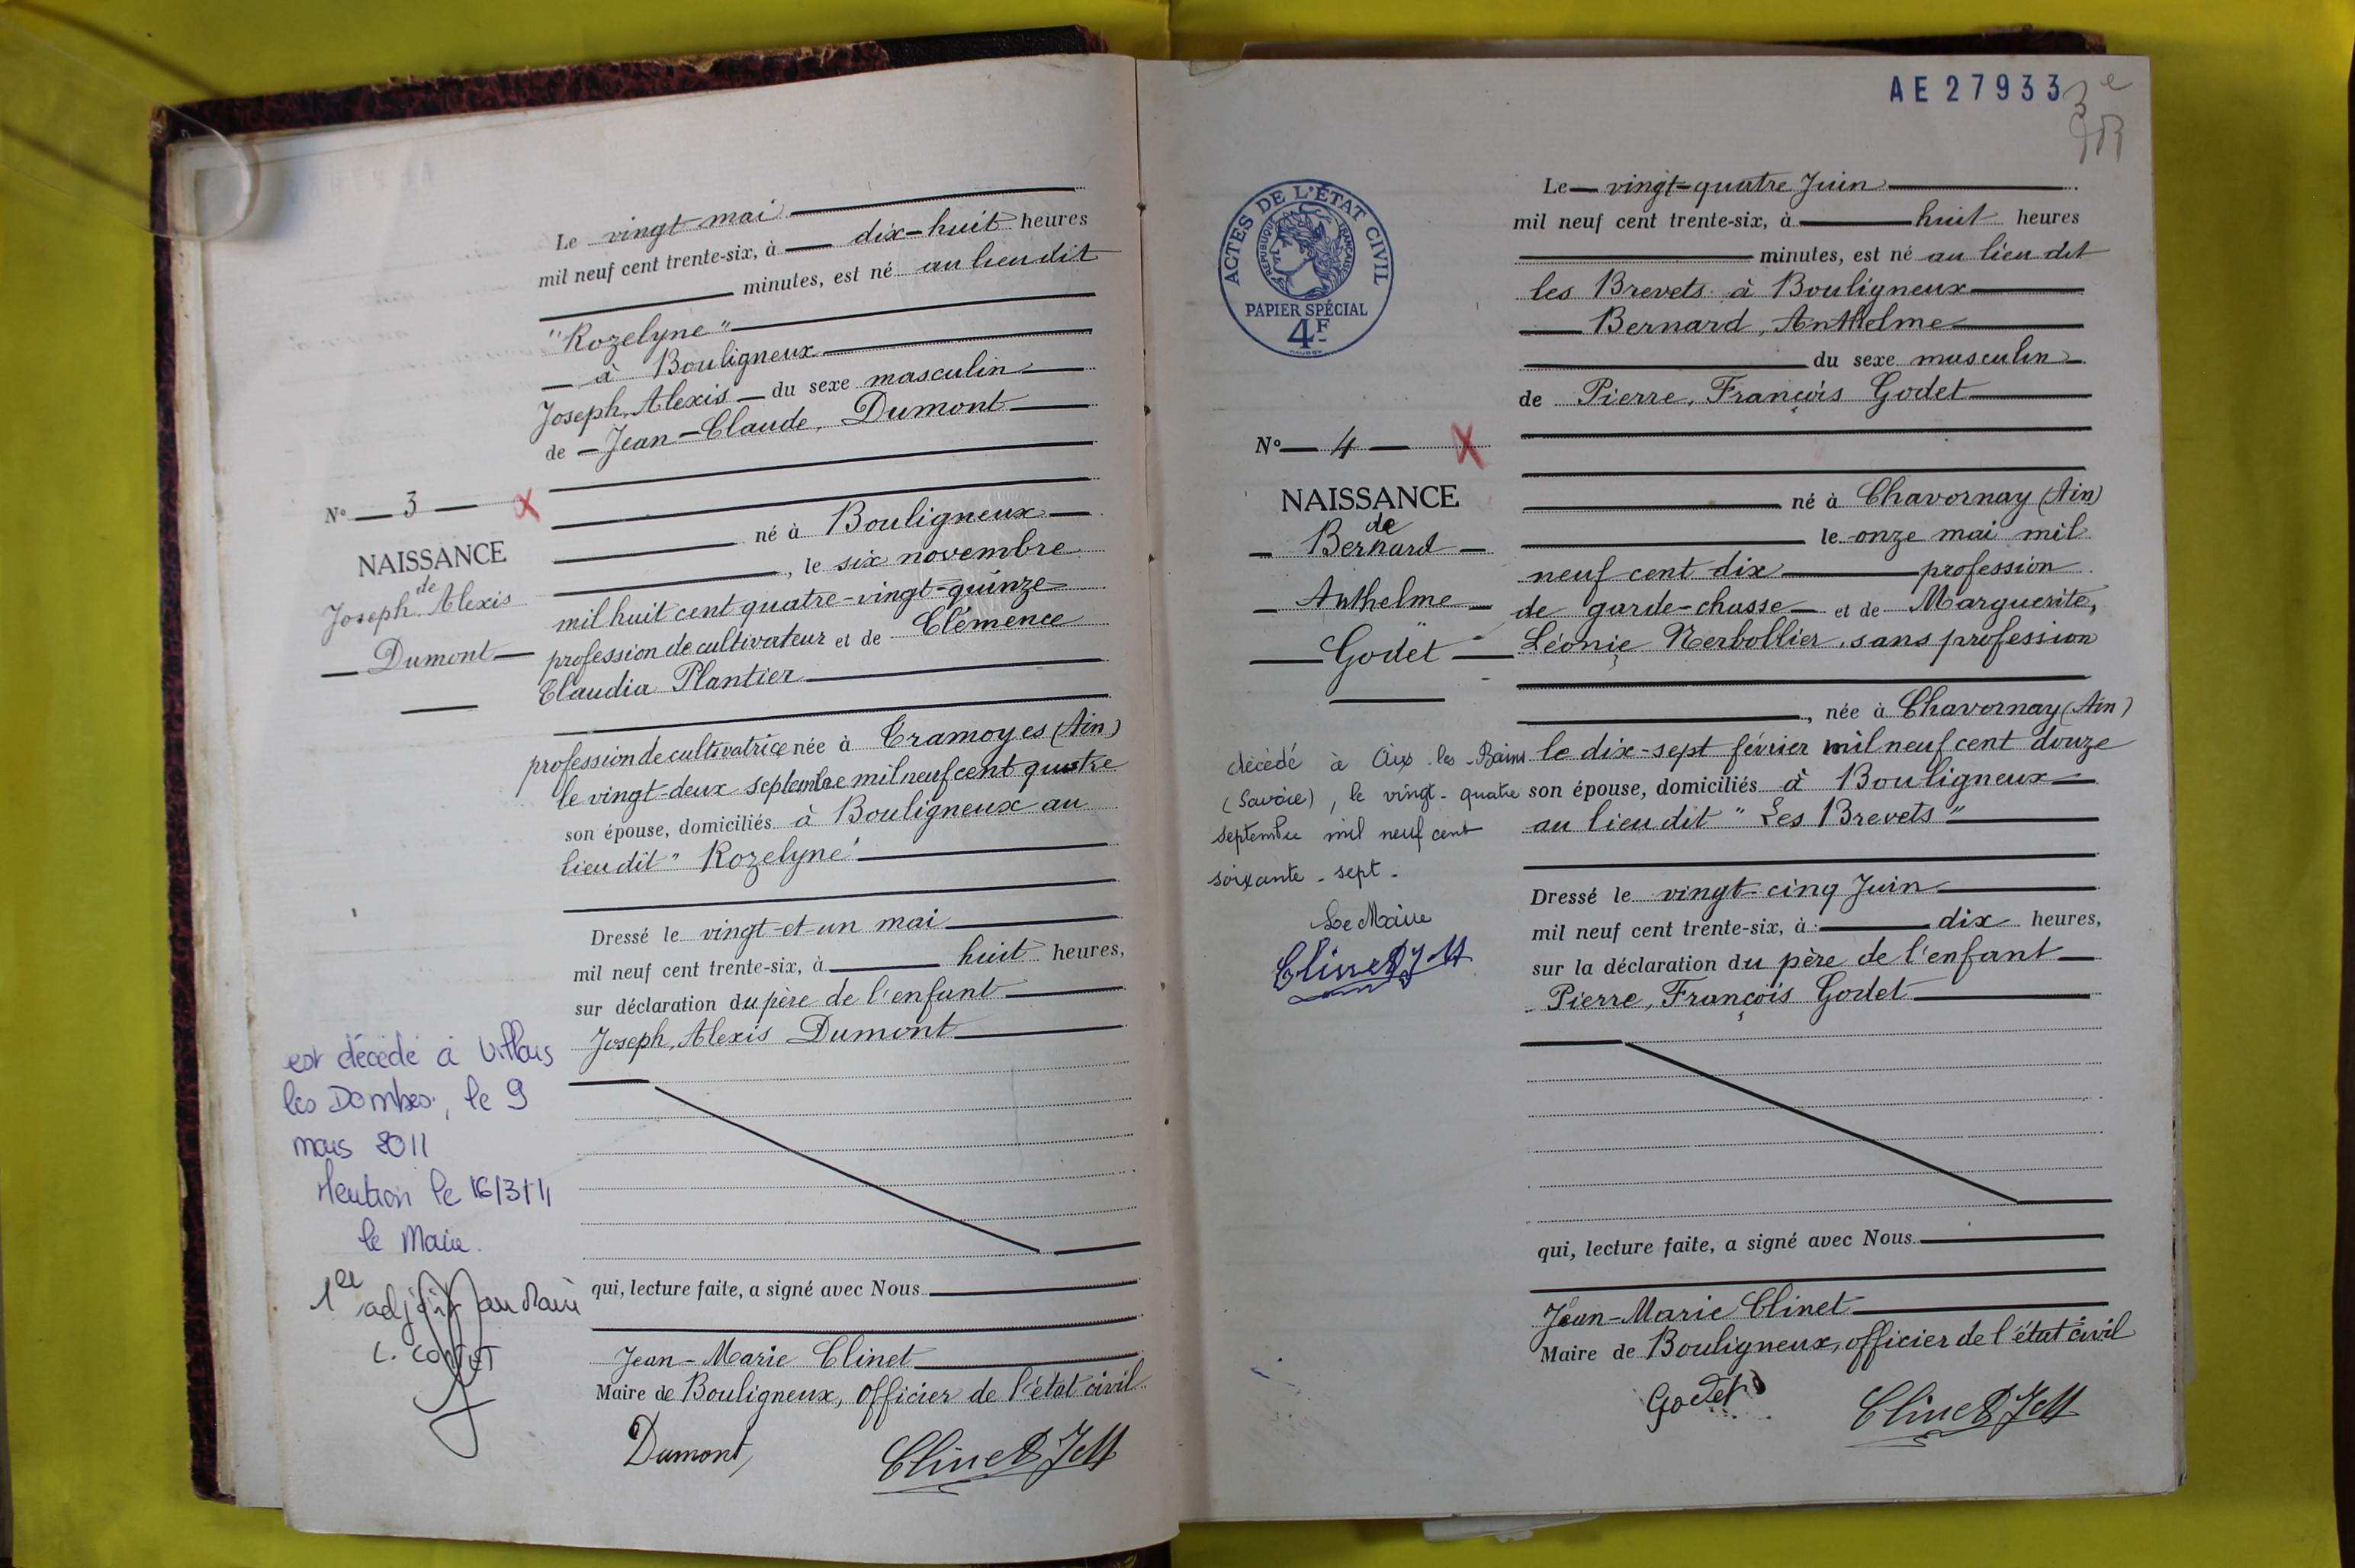 Le vingt mai
mil neuf cent trente-six, à dix-huit heures
minutes, est né au lieu dit
"Rozelyne"
à Bouligneux
Joseph, Alexis du sexe masculin
de Jean-Claude, Dumont
né à Bouligneux
, le six novembre
mil huit cent quatre-vingt-quinze
profession de cultivateur et de Clémence
Claudia Plantier
profession de cultivatrice née à Tramoyes (Ain)
le vingt-deux septembre mil neuf cent quatre
son épouse, domiciliés à Bouligneux au
lieu dit "Rozelyne"
Dressé le vingt-et-un mai
mil neuf cent trente-six, à huit heures,
sur déclaration du père de l'enfant
Joseph, Alexis Dumont
qui, lecture faite, a signé avec Nous
Jean-Marie Clinet
Maire de Bouligneux, officier de l'état civil
Dumont
Clinet JM
N° 3 X
NAISSANCE
de
Joseph Alexis
Dumont
est décédé à Villars
les Dombes, le 9
mars 2011
Mention le 16/3/11
le Maire.
1er adjoint au Maire
AE27933
3e
ACTES DE L'ÉTAT CIVIL
RÉPUBLIQUE FRANÇAISE
PAPIER SPÉCIAL
4F
N° 4 X
NAISSANCE
de
Bernard
Anthelme
Godet
décédé à Aix-les-Bains
(Savoie), le vingt-quatre
septembre mil neuf cent
soixante-sept.
Le Maire
Clinet JM
Le vingt-quatre Juin
mil neuf cent trente-six, à huit heures
minutes, est né au lieu dit
les Brevets à Bouligneux
Bernard, Anthelme
du sexe masculin
de Pierre, François Godet
né à Chavornay (Ain)
le onze mai mil
neuf cent dix profession
de garde-chasse et de Marguerite,
Léonie Nerbollier, sans profession
, née à Chavornay (Ain)
le dix-sept février mil neuf cent douze
son épouse, domiciliés à Bouligneux
au lieu dit "Les Brevets"
Dressé le vingt-cinq Juin
mil neuf cent trente-six, à dix heures,
sur la déclaration du père de l'enfant
Pierre, François Godet
qui, lecture faite, a signé avec Nous
Jean-Marie Clinet
Maire de Bouligneux, officier de l'état civil
Godet
Clinet JM